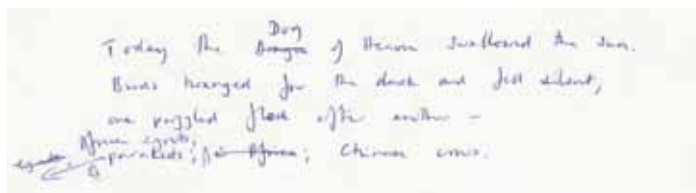 Today the Dragon Dog of Heaven swallowed the sun.
Birds hanged for the dark and fell silent,
one puzzled flock after another –
African egrets,
egrets parakeets; Africa; Chinese crows.